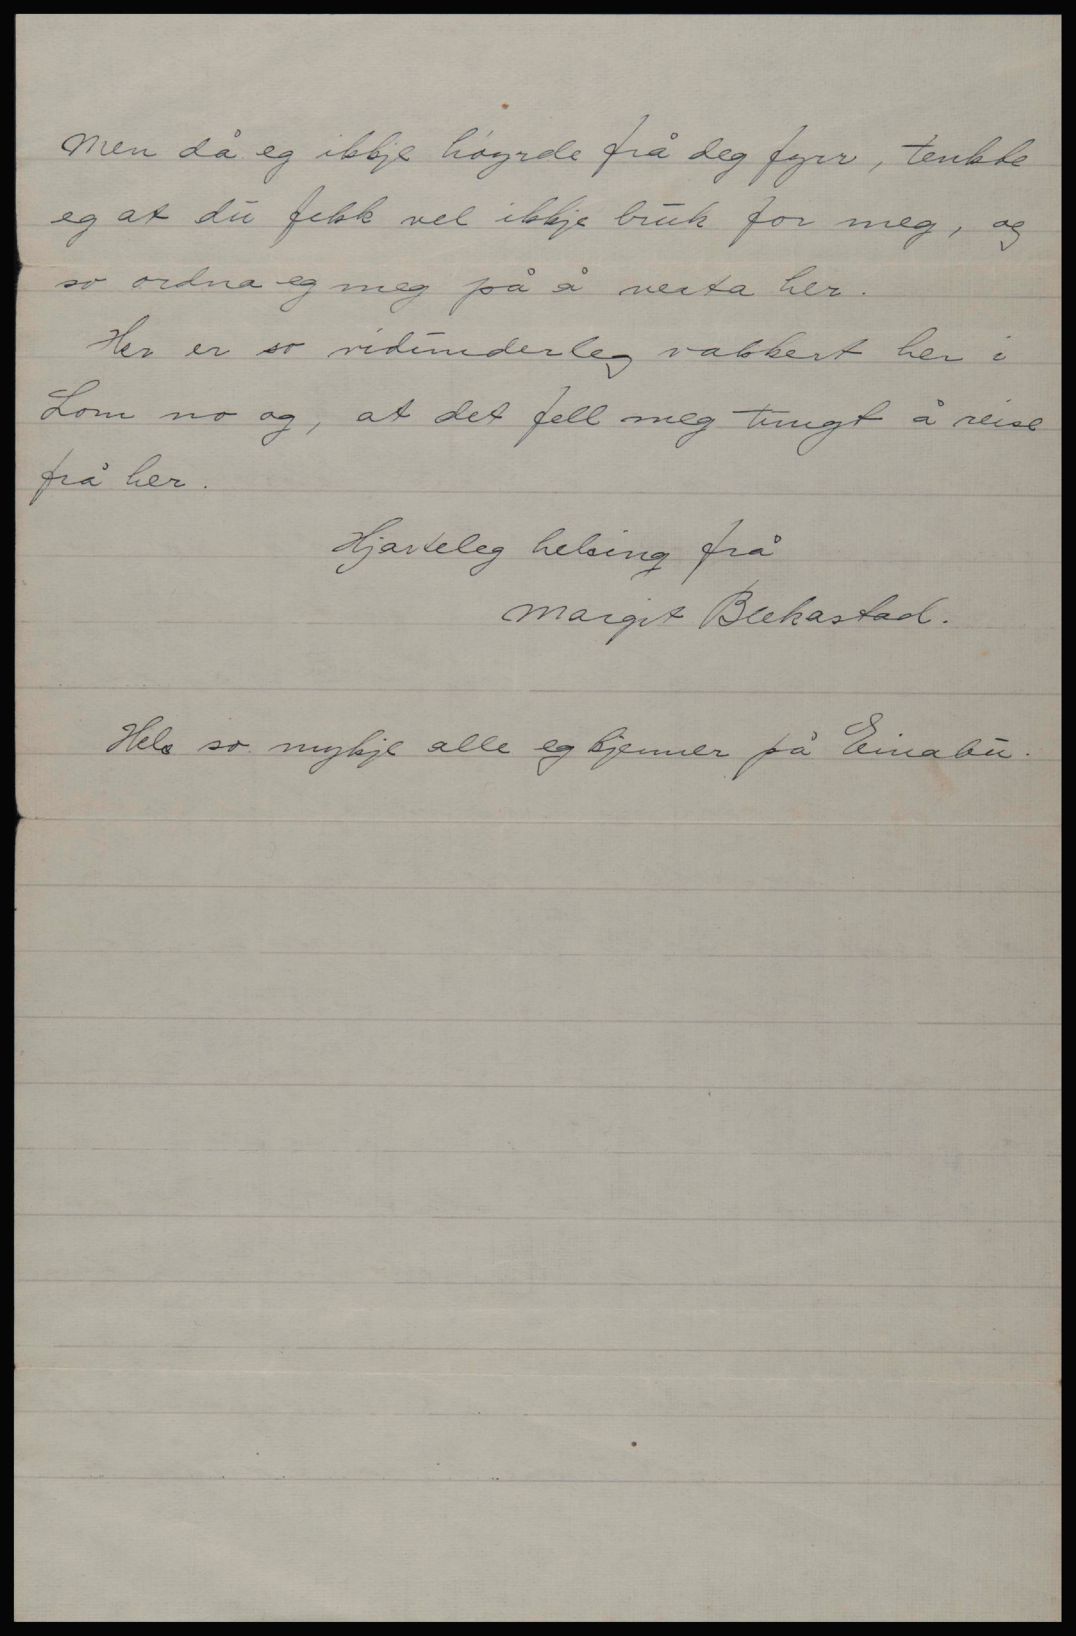 Men då eg ikkje høyrde frå deg fyrr, tenkte
eg at du fekk vel ikkje bruk for meg, og
so ordna eg meg på å verta her.
Her er so vidunderleg vakkert her i
Lom no og, at det fell meg tungt å reise
frå her.
Hjarteleg helsing frå
Margit Blekastad.
Hels so mykje alle eg kjenner på Einabu.